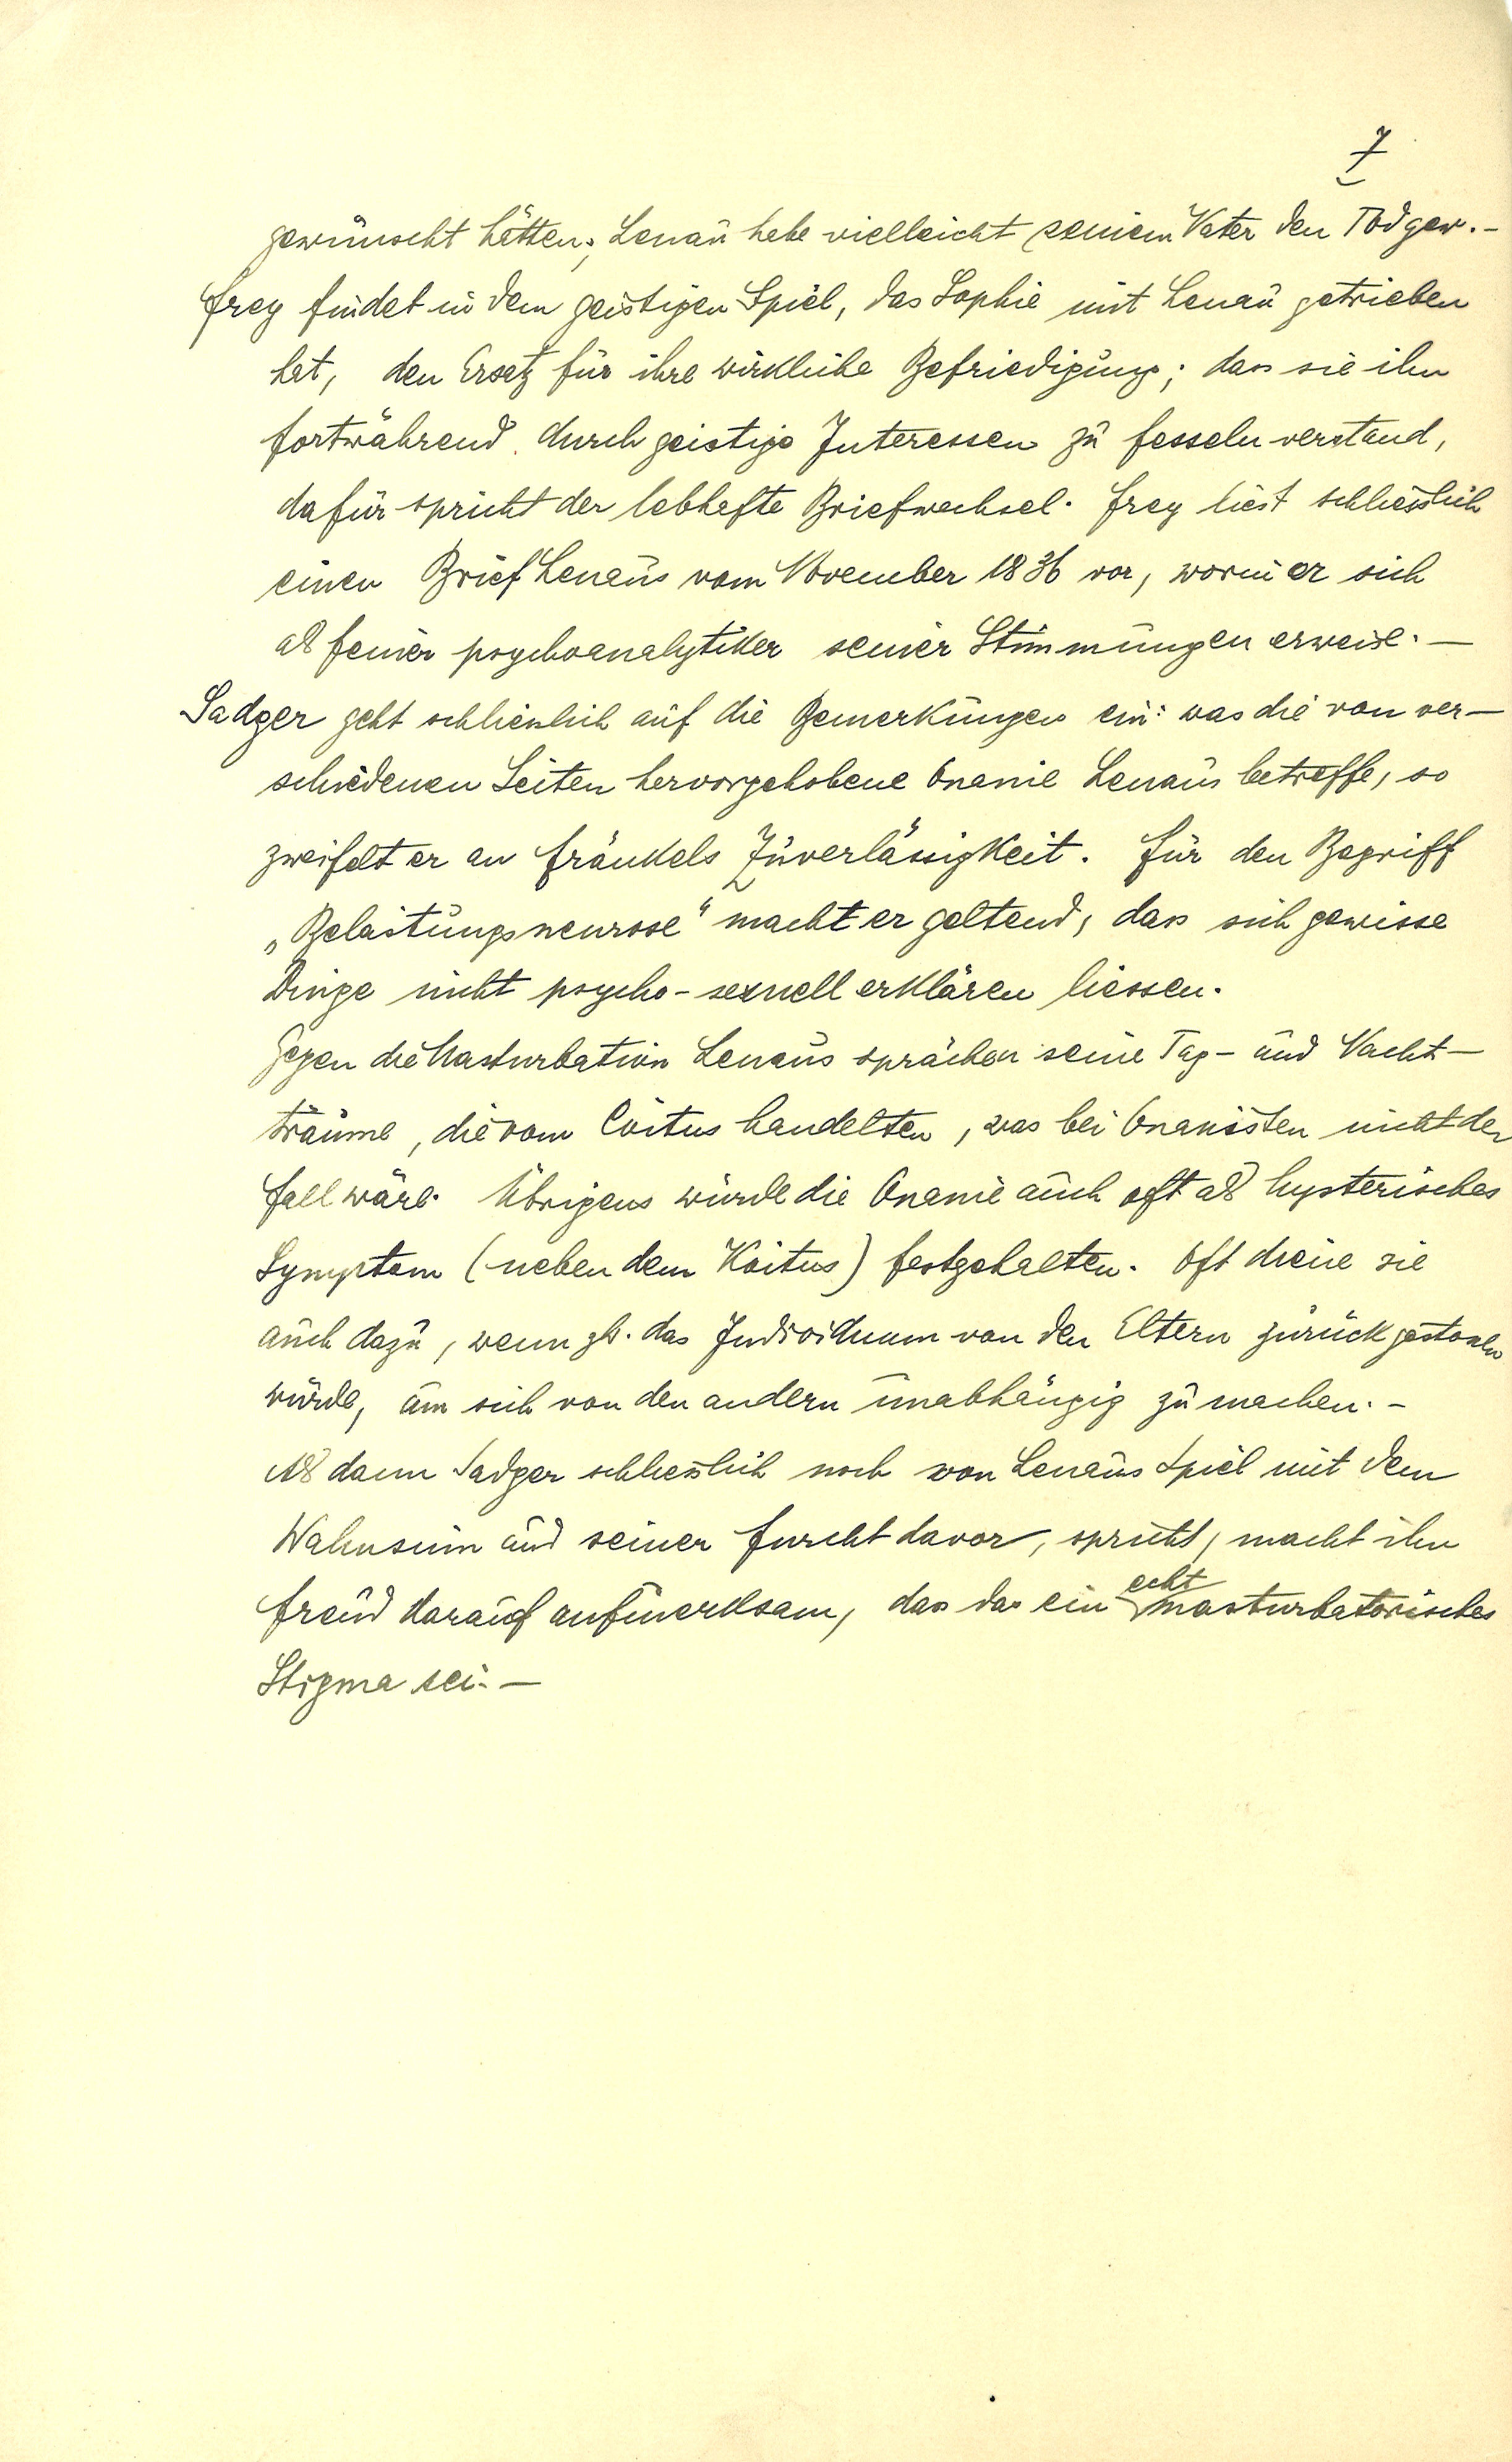 7
gewünscht hätten; Lenau habe vielleicht seinem Vater den Tod gew. –
Frey findet in dem geistigen Spiel, das Sophie mit Lenau getrieben
hat, den Ersatz für ihre wirkliche Befriedigung; dass sie ihn
fortwährend durch geistige Interessen zu fesseln verstand,
dafür spricht der lebhafte Briefwechsel. Frey liest schliesslich
einen Brief Lenaus vom November 1836 vor, worin er sich
als feiner psychoanalytiker seiner Stimmungen erweise. –
Sadger geht schliesslich auf die Bemerkungen ein: was die von ver–
schiedenen Seiten hervorgehobene Onanie Lenaus betreffe, so
zweifelt er an Fränkels Zuverlässigkeit. Für den Begriff
„Belastungsneurose“ macht er geltend, dass sich gewisse
Dinge nicht psycho-sexuell erklären liessen.
Gegen die Masturbation Lenaus sprächen seine Tag- und Nacht–
träume, die vom Coitus handelten, was bei Onanisten nicht der
Fall wäre. Übrigens würde die Onanie auch oft als hysterisches
Symptom (neben dem Koitus) festgehalten. Oft diene sie
auch dazu, wenn zb. das Individuum von den Eltern zurückgestossen
würde, um sich von den andern unabhängig zu machen. –
Als dann Sadger schliesslich noch von Lenaus Spiel mit dem
Wahnsinn und seiner Furcht davor, spricht, macht ihn
Freud darauf aufmerksam, dass das ein echt masturbatorisches
Stigma sei. –